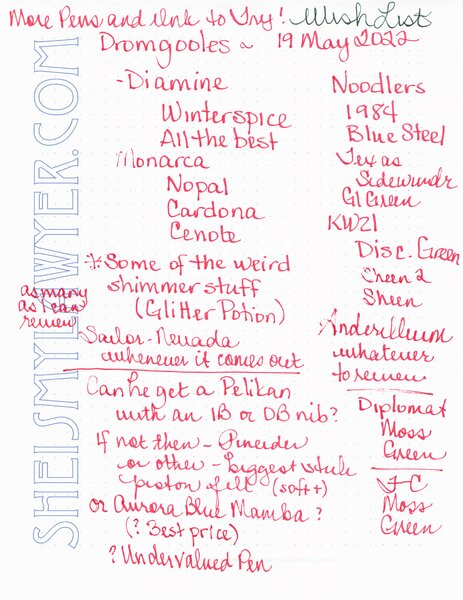 More Pens and Ink to Try! Wish List
Dromgooles ~ 19 May 2022
- Diamine
Winterspice
All the best
Monarca
Nopal
Cardona
Cenote
* Some of the weird
shimmer stuff
(Glitter Potion)
as many
as I can
review
Sailor - Nevada
whenever it comes out
Can he get a Pelikan
with an IB or OB nib?
If not then - Pineider
or other - biggest
piston fill (soft+)
or Aurora Blue Mamba?
(? Best price)
? Undervalued Pen
Noodlers
1984
Blue Steel
Texas
Sidewinder
GI Green
KWZI
Disc. Green
Sheen 2
Sheen
Anderillium
whatever
to review
Diplomat
Moss
Green
FC
Moss
Green
SHEISMYLAWYER.COM